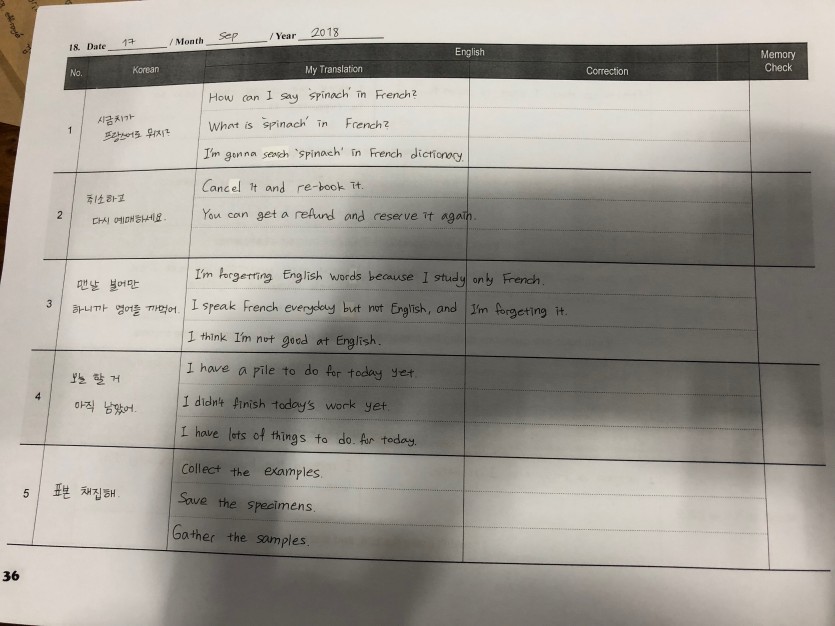 18. Date 17 / Month Sep / Year 2018
No. Korean English Memory Check
My Translation Correction
1 시금치가
프랑스어로 뭐지?
How can I say 'spinach' in French?
What is 'spinach' in French?
I'm gonna search 'spinach' in French dictionary.
2 취소하고
다시 예매하세요.
Cancel it and re-book it.
You can get a refund and reserve it again.
3 맨날 불어만
하니까 영어를 까먹어.
I'm forgetting English words because I study only French.
I speak French everyday but not English, and I'm forgeting it.
I think I'm not good at English.
4 오늘 할 거
아직 남았어.
I have a pile to do for today yet.
I didn't finish today's work yet
I have lots of things to do for today.
5 표본 채집해.
Collect the examples.
Save the specimens.
Gather the samples.
36